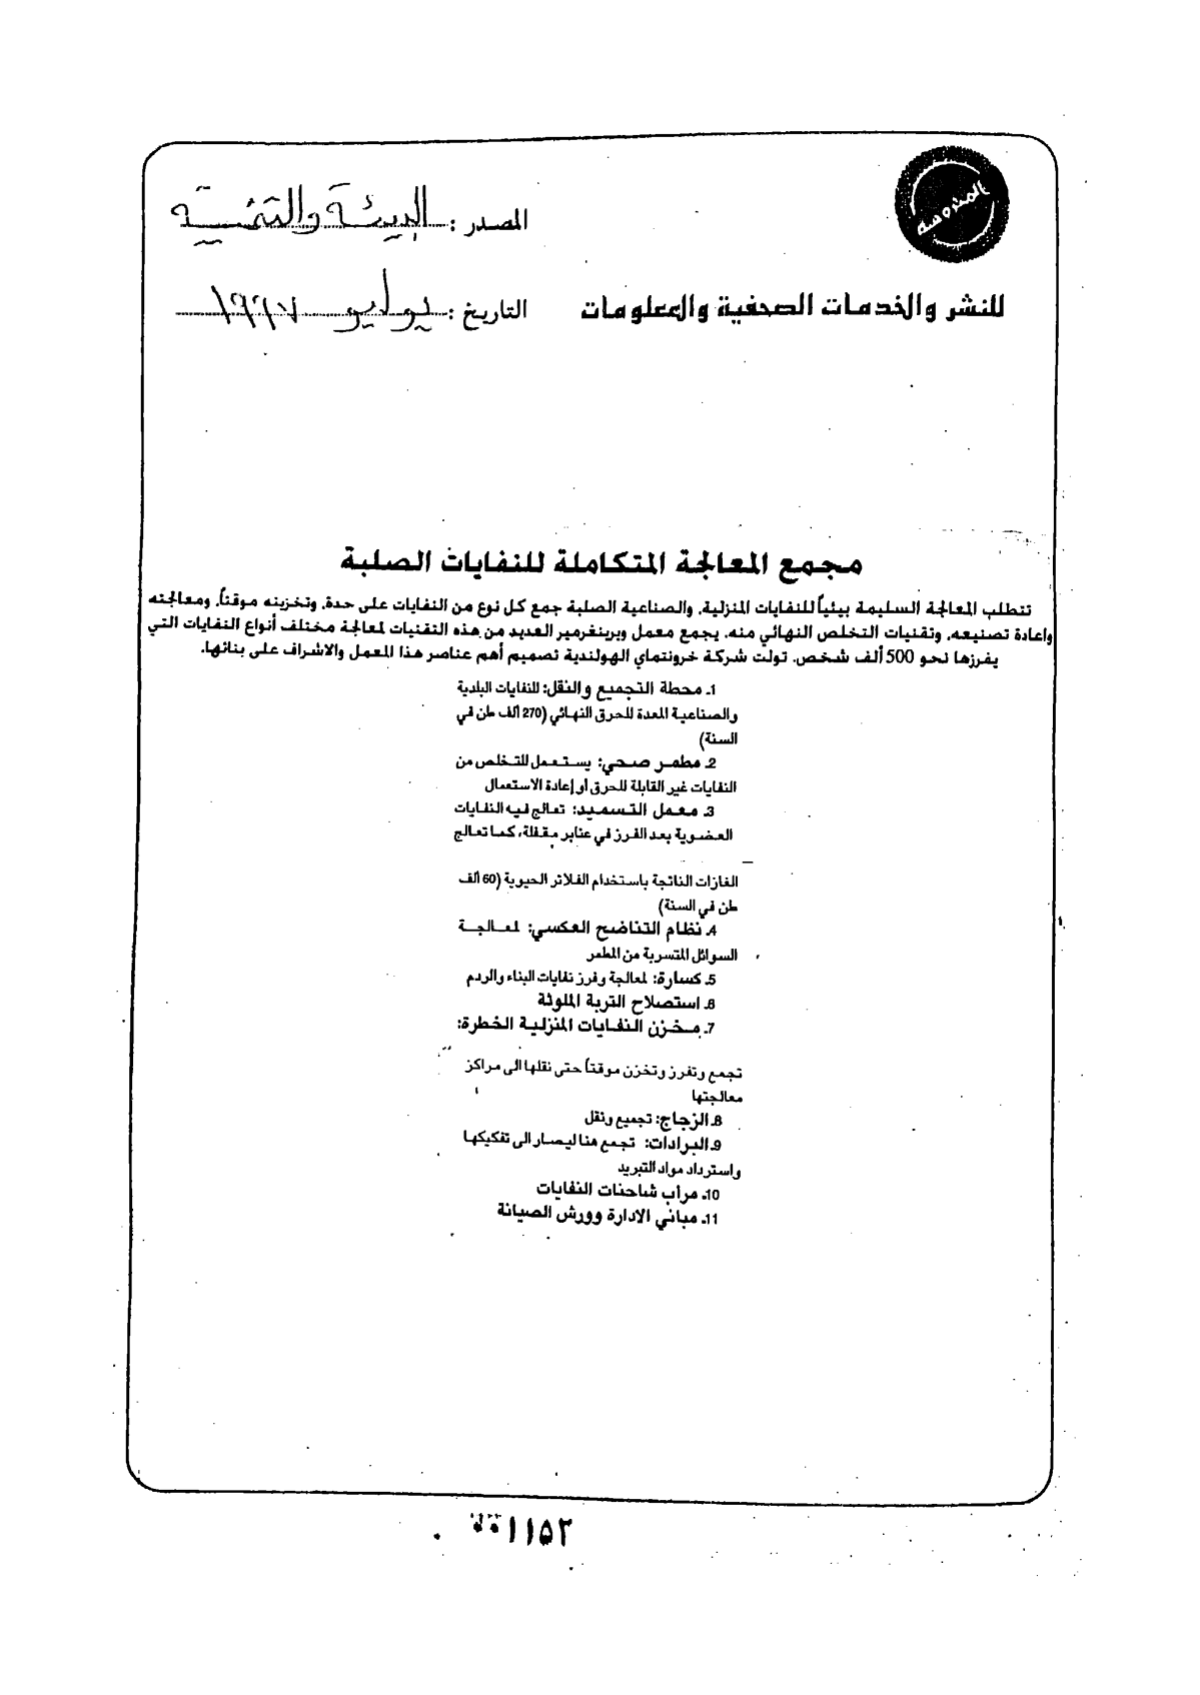 المحروسة
المصدر: البيئة والتنمية
للنشر والخدمات الصحفية والمعلومات
التاريخ: يوليو ١٩٩٧
مجمع المعالجة المتكاملة للنفايات الصلبة
تتطلب المعالجة السليمة بيئياً للنفايات المنزلية، والصناعية الصلبة جمع كل نوع من النفايات على حدة، وتخزينه موقتاً، ومعالجته
وإعادة تصنيعه، وتقنيات التخلص النهائي منه. يجمع معمل ويرينغرمير العديد من هذه التقنيات لمعالجة مختلف أنواع النفايات التي
يفرزها نحو 500 ألف شخص. تولت شركة خرونتماي الهولندية تصميم أهم عناصر هذا المعمل والاشراف على بنائها.
1ـ محطة التجميع والنقل: للنفايات البلدية
والصناعية المعدة للحرق النهائي (270 ألف طن في
السنة)
2ـ مطمر صحي: يستعمل للتخلص من
النفايات غير القابلة للحرق أو إعادة الاستعمال
3ـ معمل التسميد: تعالج فيه النفايات
العضوية بعد الفرز في عنابر مقفلة، كما تعالج
الغازات الناتجة باستخدام الفلاتر الحيوية (60 ألف
طن في السنة)
4ـ نظام التناضح العكسي: لمعالجة
السوائل المتسربة من المطمر
5ـ كسارة: لمعالجة وفرز نفايات البناء والردم
6ـ استصلاح التربة الملوثة
7ـ مخزن النفايات المنزلية الخطرة:
تجمع وتفرز وتخزن موقتاً حتى نقلها الى مراكز
معالجتها
8ـ الزجاج: تجميع ونقل
9ـ البرادات: تجمع هنا ليصار الى تفكيكها
واسترداد مواد التبريد
10ـ مرآب شاحنات النفايات
11ـ مباني الادارة وورش الصيانة
١١٥٢